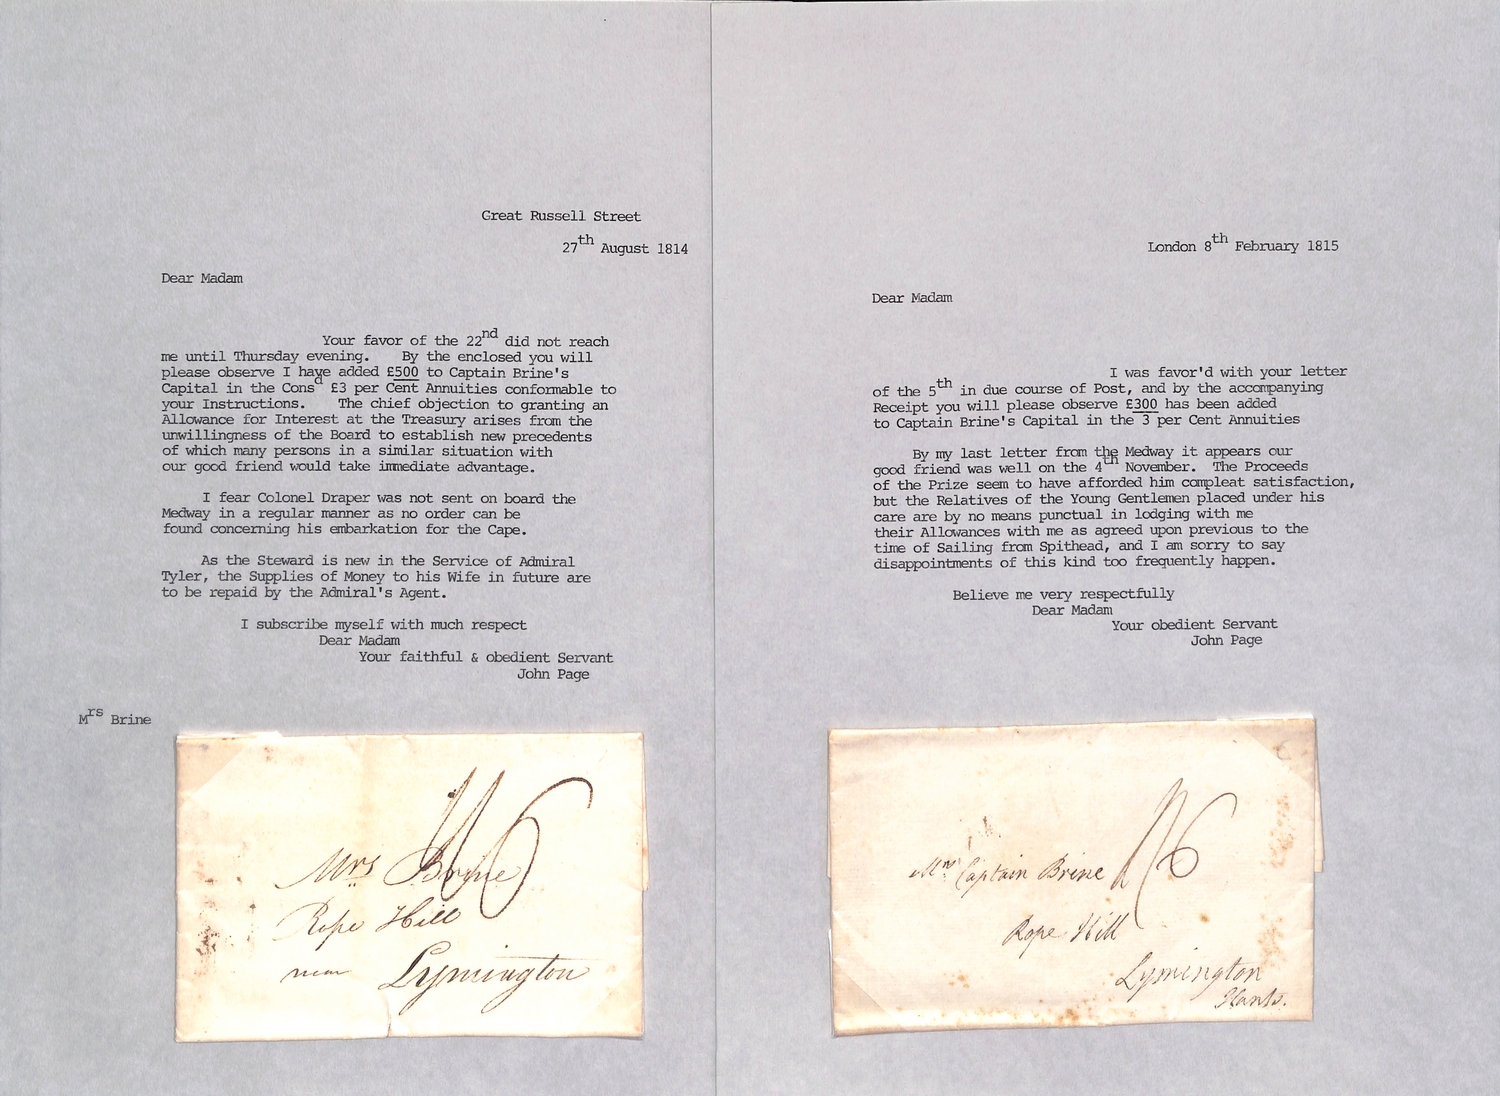 Great Russell Street
27th August 1814
Dear Madam
Your favor of the 22nd did not reach
me until Thursday evening. By the enclosed you will
please observe I have added £500 to Captain Brine's
Capital in the Consd £3 per Cent Annuities conformable to
your Instructions. The chief objection to granting an
Allowance for Interest at the Treasury arises from the
unwillingness of the Board to establish new precedents
of which many persons in a similar situation with
our good friend would take immediate advantage.
I fear Colonel Draper was not sent on board the
Medway in a regular manner as no order can be
found concerning his embarkation for the Cape.
As the Steward is new in the Service of Admiral
Tyler, the Supplies of Money to his Wife in future are
to be repaid by the Admiral's Agent.
I subscribe myself with much respect
Dear Madam
Your faithful & obedient Servant
John Page
Mrs Brine
Mrs Brine
Rope Hill
near Lymington
London 8th February 1815
Dear Madam
I was favor'd with your letter
of the 5th in due course of Post, and by the accompanying
Receipt you will please observe £300 has been added
to Captain Brine's Capital in the 3 per Cent Annuities
By my last letter from the Medway it appears our
good friend was well on the 4th November. The Proceeds
of the Prize seem to have afforded him compleat satisfaction,
but the Relatives of the Young Gentlemen placed under his
care are by no means punctual in lodging with me
their Allowances with me as agreed upon previous to the
time of Sailing from Spithead, and I am sorry to say
disappointments of this kind too frequently happen.
Believe me very respectfully
Dear Madam
Your obedient Servant
John Page
Mrs Captain Brine
Rope Hill
Lymington
Hants.